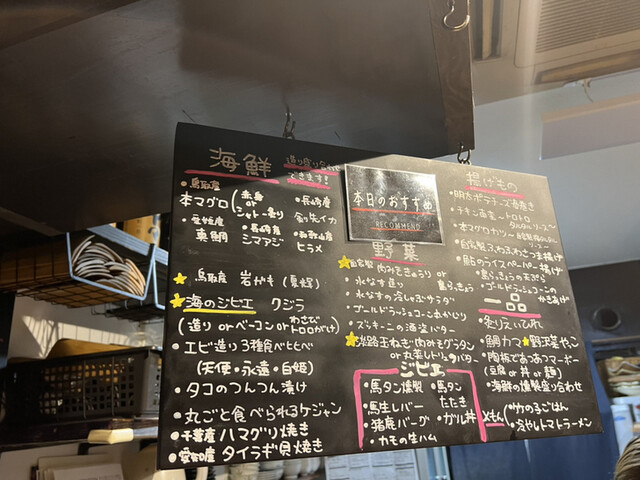 海鮮
造り盛り合わせ
できます!
・鳥取産
本マグロ(赤身 or シャトー造り)
・長崎産
・愛媛産
真鯛
・長崎産
シマアジ
・和歌山産
ヒラメ
鳥取産 岩がき(夏輝)
海のジビエ クジラ
(造り or ベーコン or わさびトロロがけ)
・エビ造り3種食べ比べ
(天使・永遠・白姫)
・タコのつんつん漬け
・丸ごと食べられるケジャン
・千葉産 ハマグリ焼き
・愛知産 タイラギ貝焼き
本日のおすすめ
RECOMMEND
野菜
自家製 肉みそきゅうり or 島らっきょう
・水なす造り
・水なすの冷しゃぶサラダ
・ゴールドラッシュコーン
・ズッキーニの酒盗バター
淡路玉ねぎ 肉みそグラタン
or 丸蒸し バター
ジビエ
・馬タン燻製
・馬タンたたき
・馬生レバー
・猪鹿バーグ
・ガル丼
・カモの生ハム
揚げもの
・明太ポテチーズ春巻き
・チキン南蛮〜トロトロタルタルソース〜
・本マグロカツ
・自家製ふわふわさつま揚げ
・鮎のライスペーパー揚げ
・島らっきょうの天ぷら
・ゴールドラッシュコーンのかきあげ
一品
・炙りえいひれ
・鯛カマ
野沢菜やっこ
・陶板であつあつマーボー
(豆腐 or 丼 or 麺)
・海鮮の燻製盛り合わせ
〆もん
・竹のこごはん
・冷やしトマトラーメン